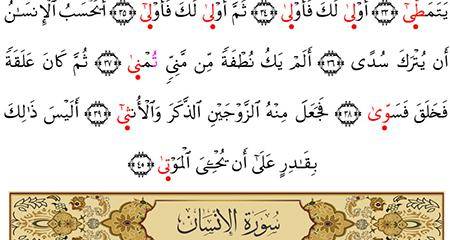 يَتَمَطِّىٰٓ ﴿٣٣﴾ أَوْلِىٰ لَكَ فَأَوْلِىٰ ﴿٣٤﴾ ثُمَّ أَوْلِىٰ لَكَ فَأَوْلِىٰٓ ﴿٣٥﴾ أَيَحْسَبُ ٱلْإِنسَـٰنُ
أَن يُتْرَكَ سُدًى ﴿٣٦﴾ أَلَمْ يَكُ نُطْفَةً مِّن مَّنِىٍّ تُمْنِىٰ ﴿٣٧﴾ ثُمَّ كَانَ عَلَقَةً
فَخَلَقَ فَسَوِّىٰ ﴿٣٨﴾ فَجَعَلَ مِنْهُ ٱلزَّوْجَيْنِ ٱلذَّكَرَ وَٱلْأُنثِىٰٓ ﴿٣٩﴾ أَلَيْسَ ذَٰلِكَ
بِقَـٰدِرٍ عَلَىٰٓ أَن يُحْـِۧىَ ٱلْمَوْتِىٰ ﴿٤٠﴾
سُورَةُ الإِنْسَانِ